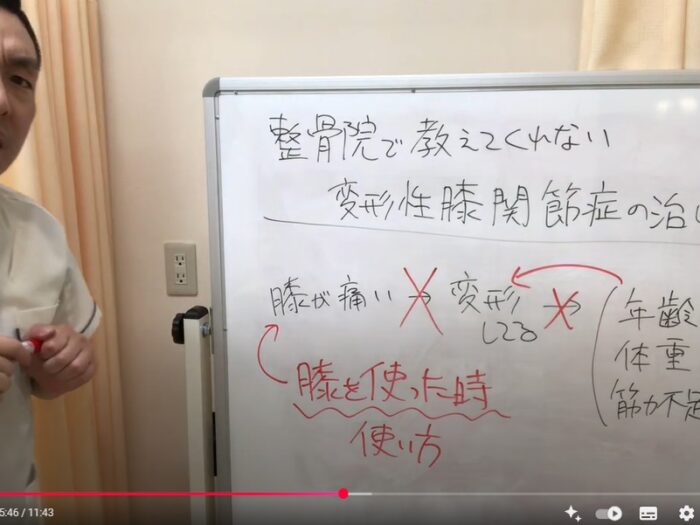 整骨院で教えてくれない
変形性膝関節症の治
膝が痛い → 変形してる → (年齢
体重
筋力不足
膝を使った時
使い方
5:46 / 11:43